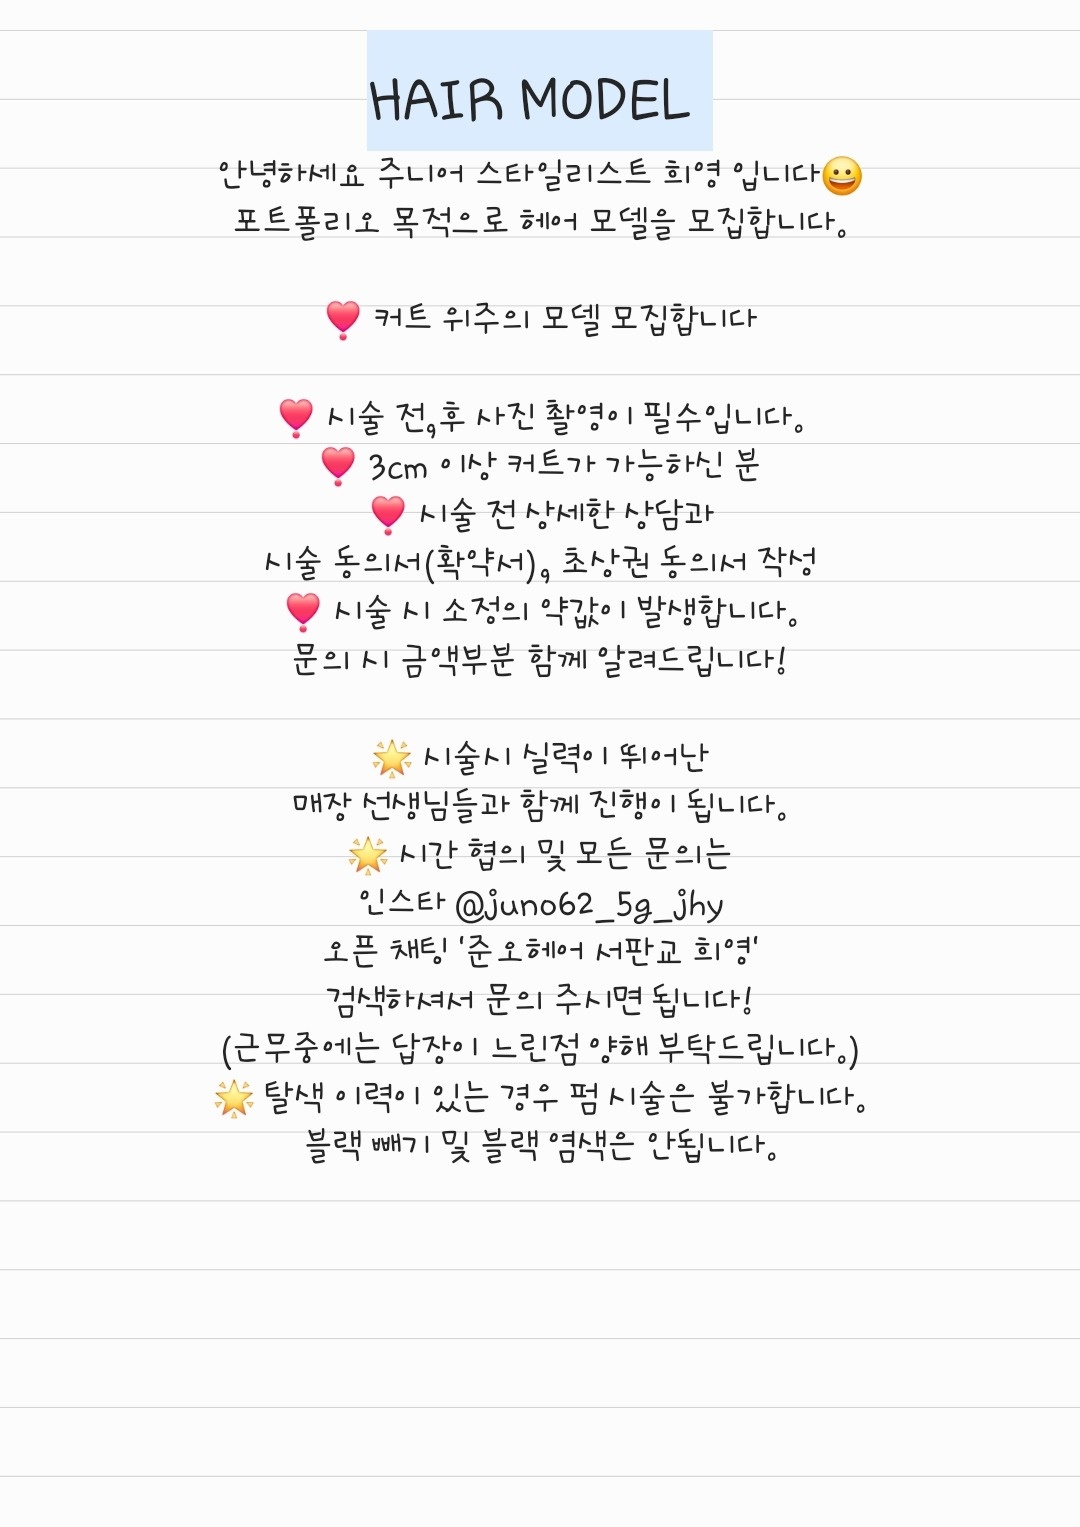 HAIR MODEL
안녕하세요 주니어 스타일리스트 희영 입니다😀
포트폴리오 목적으로 헤어 모델을 모집합니다.
❣️ 커트 위주의 모델 모집합니다
❣️ 시술 전,후 사진 촬영이 필수입니다.
❣️ 3cm 이상 커트가 가능하신 분
❣️ 시술 전 상세한 상담과
시술 동의서(확약서), 초상권 동의서 작성
❣️ 시술 시 소정의 약값이 발생합니다.
문의 시 금액부분 함께 알려드립니다!
🌟 시술시 실력이 뛰어난
매장 선생님들과 함께 진행이 됩니다.
🌟 시간 협의 및 모든 문의는
인스타 @juno62_5g_jhy
오픈 채팅 '준오헤어 서판교 희영'
검색하셔서 문의 주시면 됩니다!
(근무중에는 답장이 느린점 양해 부탁드립니다.)
🌟 탈색 이력이 있는 경우 펌 시술은 불가합니다.
블랙 빼기 및 블랙 염색은 안됩니다.